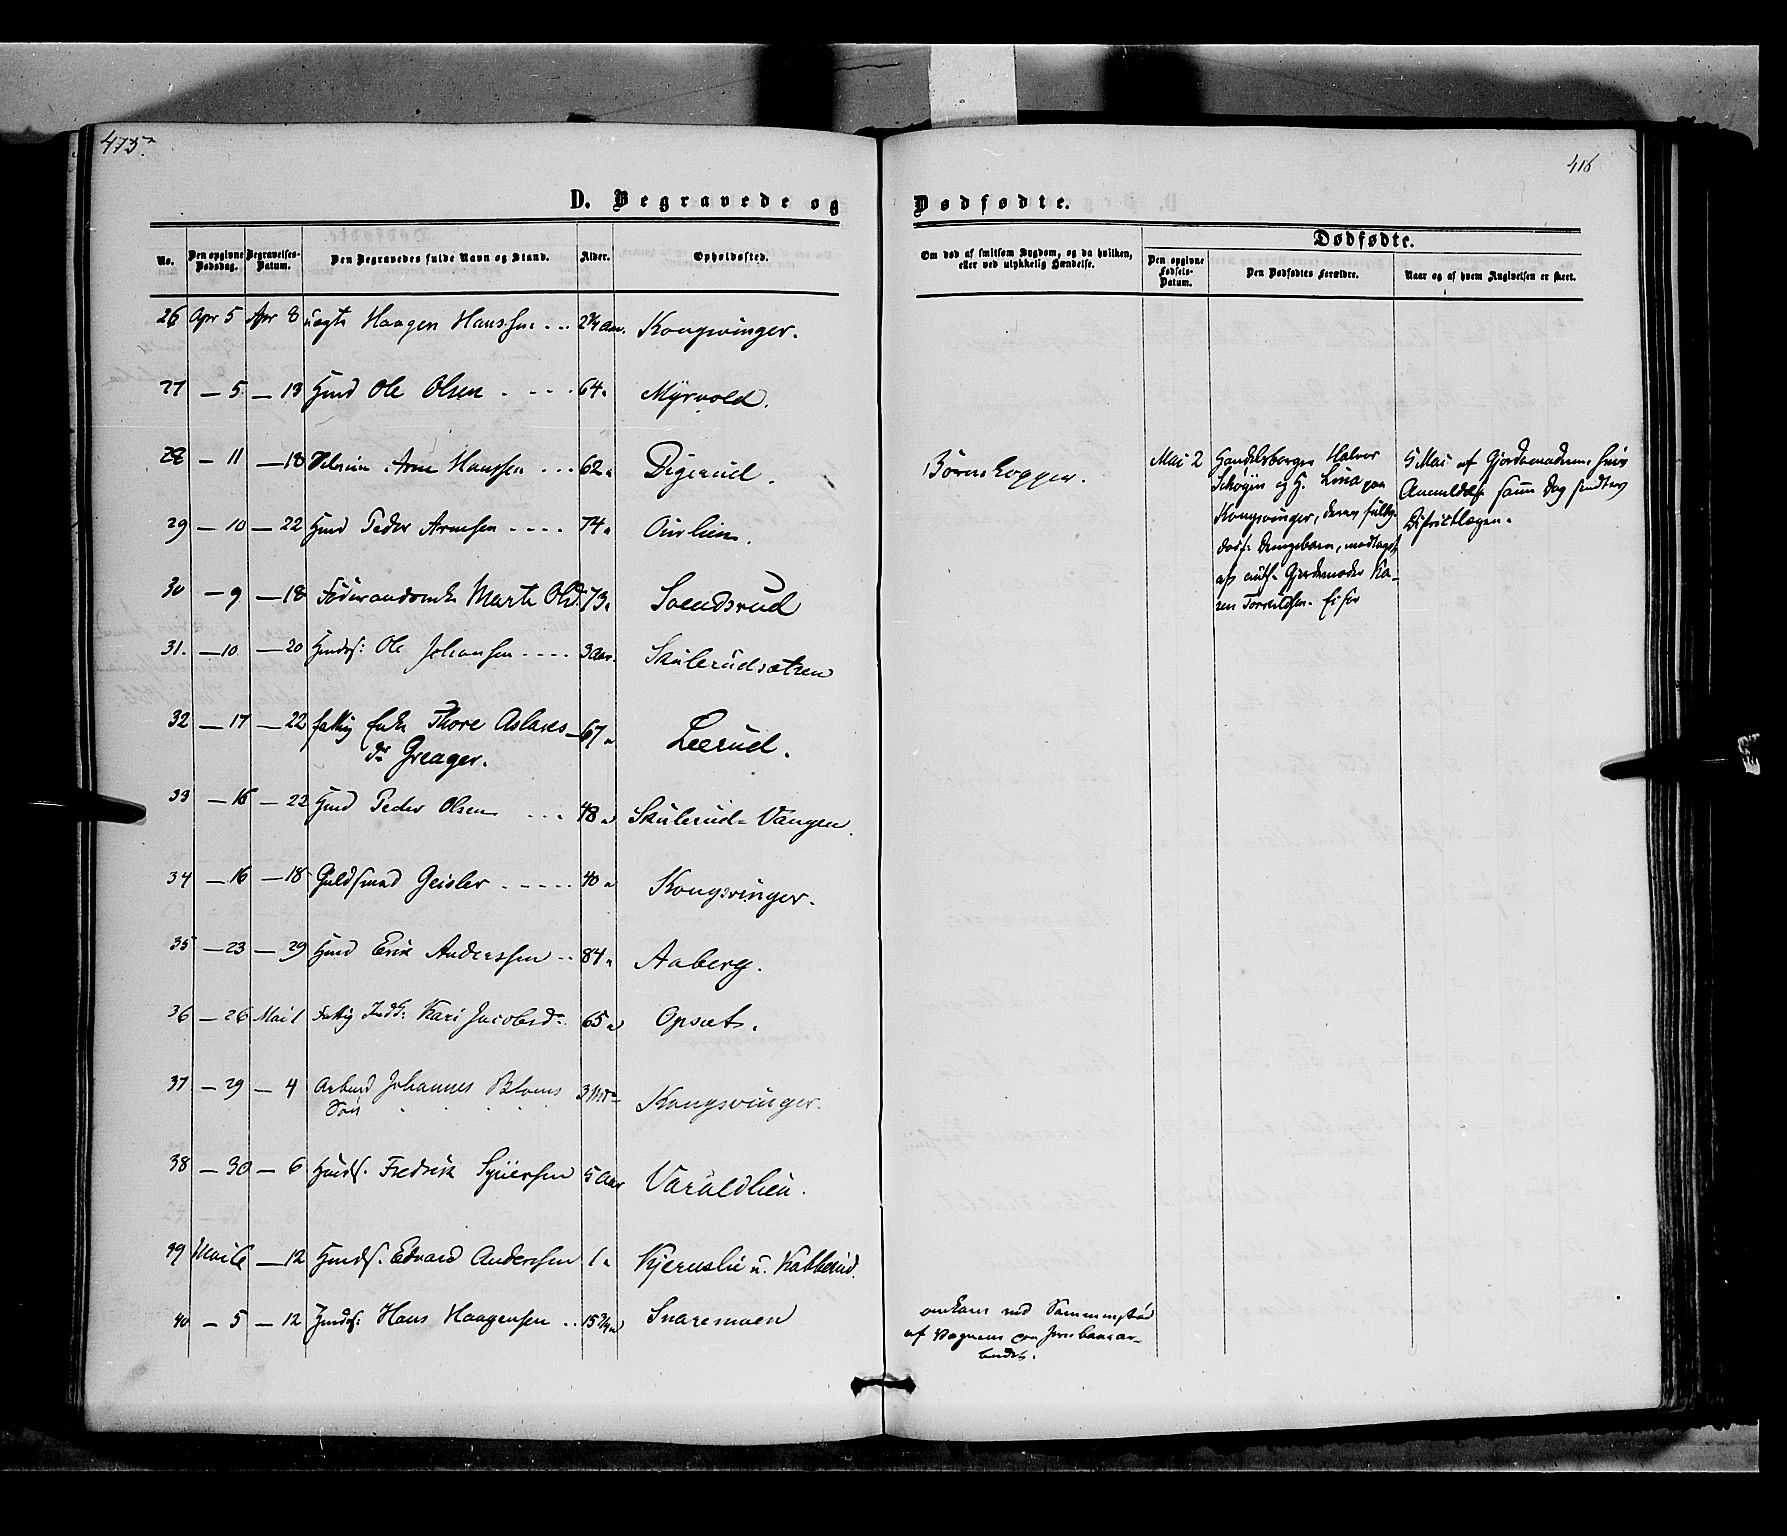 475.
416
D. Begravede og
Dødfødte.
No.
Den opgivne Dødsdag.
Begravelses-Datum.
Den Begravedes fulde Navn og Stand.
Alder.
Opholdssted.
Om død af smitsom Sygdom, og da hvilken,
eller ved ulykkelig Hændelse.
Dødfødte.
Den opgivne Fødsels-Datum.
Den Dødfødtes Forældre.
Naar og af hvem Angivelsen er skeet.
26 Apr 5 Apr 8 uægte Haagen Hanssen 2¾ Aar. Kongsvinger.
27 — 5 — 13 Huusmd Ole Olsen 64 " Myrvold.
28 — 11 — 18 Arne Hanssen 62 " Digerud. Børnekopper.
29 — 10 — 22 Hmd Peder Arnesen 74 "
30 — 9 — 18 Føderaadsenke Marte Olsd. 73 " Svendsrud
31. — 10 — 20 Hmdss: Ole Johansen 3 Aar. Skulerudsætren
32 — 17 — 22 fattig Enke Thore Aslaks-
dr Greager. 67 " Leerud.
33 — 16 — 22 Hmd Peder Olsen 48 " Skulerud-Vangen.
34 — 16 — 18 Guldsmed Geisler 40 " Kongsvinger.
35 — 23 — 29 Hmd Erik Anderssen 84 " Aaberg.
36 — 26 Mai 1 Fattig Indd: Kari Jacobsd. 65 " Opsæt.
37 — 29 — 4 Arbmd Johannes Bloms
Søn 3 Mdr Kongsvinger.
38 — 30 — 6 Hmds. Fredrik Syversen 5 Aar Varaldlien.
39 Mai 6 — 12 Hmds. Edvard Anderssen 1 " Kjernslie u. Kabberud.
40 — 5 — 12 Hmds: Hans Haagensen 15 ¾ " Snaremoen
omkom ved Sammenstød
af Vognene paa Jernbanear-
beidet.
Mai 2
Handelsborger Halvor
Skogen og H. Lina paa
Kongsvinger, deres fuldb.
dødf. Drengebarn, modtaget
af aut. Gjordemoder Ka-
ren Torkildsen.
5 Mai af Gjordemoderen, hvis
Anmeldelse samme Dag sendtes
Districtlægen.